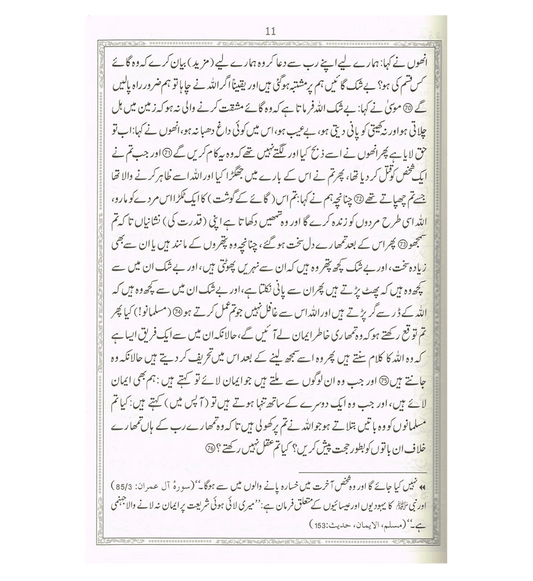 11
انھوں نے کہا: ہمارے لیے اپنے رب سے دعا کر وہ ہمارے لیے (مزید) بیان کرے کہ وہ گائے
کس قسم کی ہو؟ بے شک گائیں ہم پر مشتبہ ہوگئی ہیں اور یقیناً اگر اللہ نے چاہا تو ہم ضرور راہ پالیں
گے ⁠70 موسیٰ نے کہا: بے شک اللہ فرماتا ہے کہ وہ گائے مشقت کرنے والی نہ ہو کہ زمین میں ہل
چلاتی ہو اور نہ کھیتی کو پانی دیتی ہو، بے عیب ہو، اس میں کوئی داغ دھبا نہ ہو، انھوں نے کہا: اب تو
حق لایا ہے پھر انھوں نے اسے ذبح کیا اور لگتے نہیں تھے کہ وہ یہ کام کریں گے 71 اور جب تم نے
ایک شخص کو قتل کر دیا تھا، پھر تم نے اس کے بارے میں جھگڑا کیا اور اللہ اسے ظاہر کرنے والا تھا
جسے تم چھپاتے تھے 72 چنانچہ ہم نے کہا: تم اس (گائے کے گوشت) کا ایک ٹکڑا اس مردے کو مارو،
اللہ اسی طرح مردوں کو زندہ کرے گا اور وہ تمھیں دکھاتا ہے اپنی (قدرت کی) نشانیاں تاکہ تم
سمجھو 73 پھر اس کے بعد تمھارے دل سخت ہوگئے، چنانچہ وہ پتھروں کے مانند ہیں یا ان سے بھی
زیادہ سخت، اور بے شک کچھ پتھر وہ ہیں کہ ان سے نہریں پھوٹتی ہیں، اور بے شک ان میں سے
کچھ وہ ہیں کہ پھٹ پڑتے ہیں پھر ان سے پانی نکلتا ہے، اور بے شک ان میں سے کچھ وہ ہیں کہ
اللہ کے ڈر سے گر پڑتے ہیں اور اللہ اس سے غافل نہیں جو تم عمل کرتے ہو 74 (مسلمانو!) کیا پھر
تم توقع رکھتے ہو کہ وہ تمھاری خاطر ایمان لے آئیں گے، حالانکہ ان میں سے ایک فریق ایسا ہے
کہ وہ اللہ کا کلام سنتے ہیں پھر وہ اسے سمجھ لینے کے بعد اس میں تحریف کر دیتے ہیں حالانکہ وہ
جانتے ہیں 75 اور جب وہ ان لوگوں سے ملتے ہیں جو ایمان لائے تو کہتے ہیں: ہم بھی ایمان
لائے ہیں، اور جب وہ ایک دوسرے کے ساتھ تنہا ہوتے ہیں تو (آپس میں) کہتے ہیں: کیا تم
مسلمانوں کو وہ باتیں بتلاتے ہو جو اللہ نے تم پر کھولی ہیں تاکہ وہ تمھارے رب کے ہاں تمھارے
خلاف ان باتوں کو بطور حجت پیش کریں؟ کیا تم عقل نہیں رکھتے؟ 76
نہیں کیا جائے گا اور وہ شخص آخرت میں خسارہ پانے والوں میں سے ہوگا۔" (سورۂ آل عمران: 85/3)
اور نبی ﷺ کا یہودیوں اور عیسائیوں کے متعلق فرمان ہے: "میری لائی ہوئی شریعت پر ایمان نہ لانے والا جہنمی
ہے۔" (مسلم، الایمان، حدیث: 153)